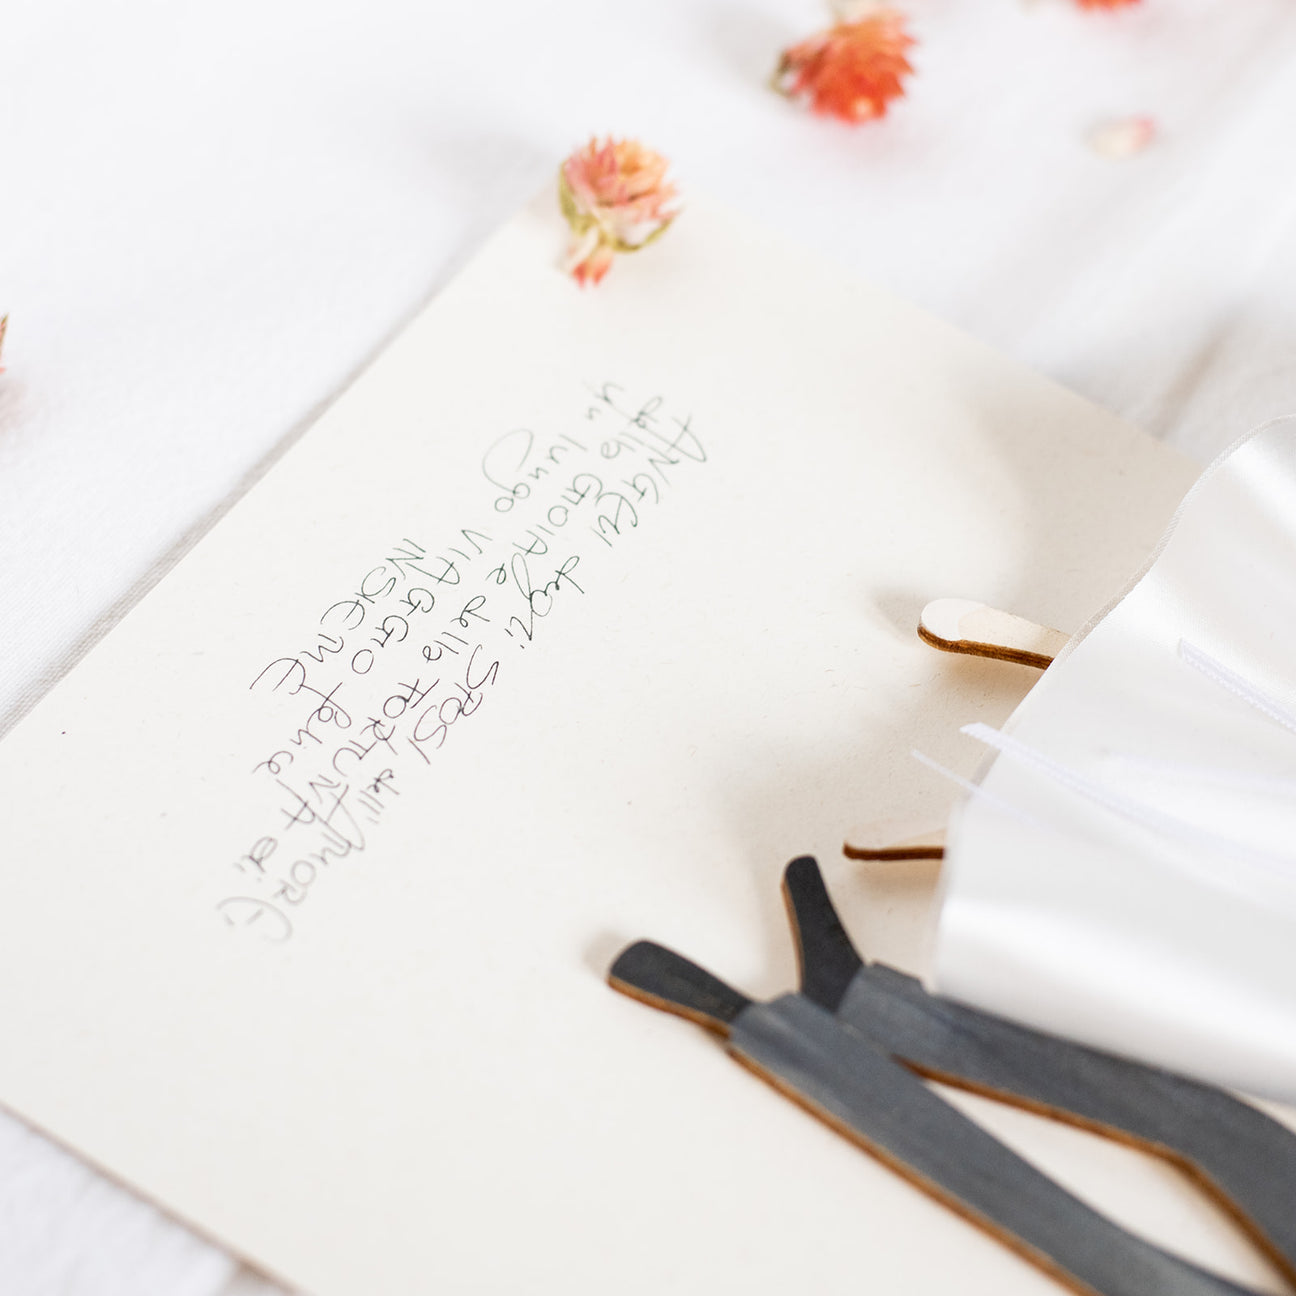 ANGELI degli SPOSI dell'AMORE
della GIOIA e della FORTUNA di
un lungo VIAGGIO felice
INSIEME